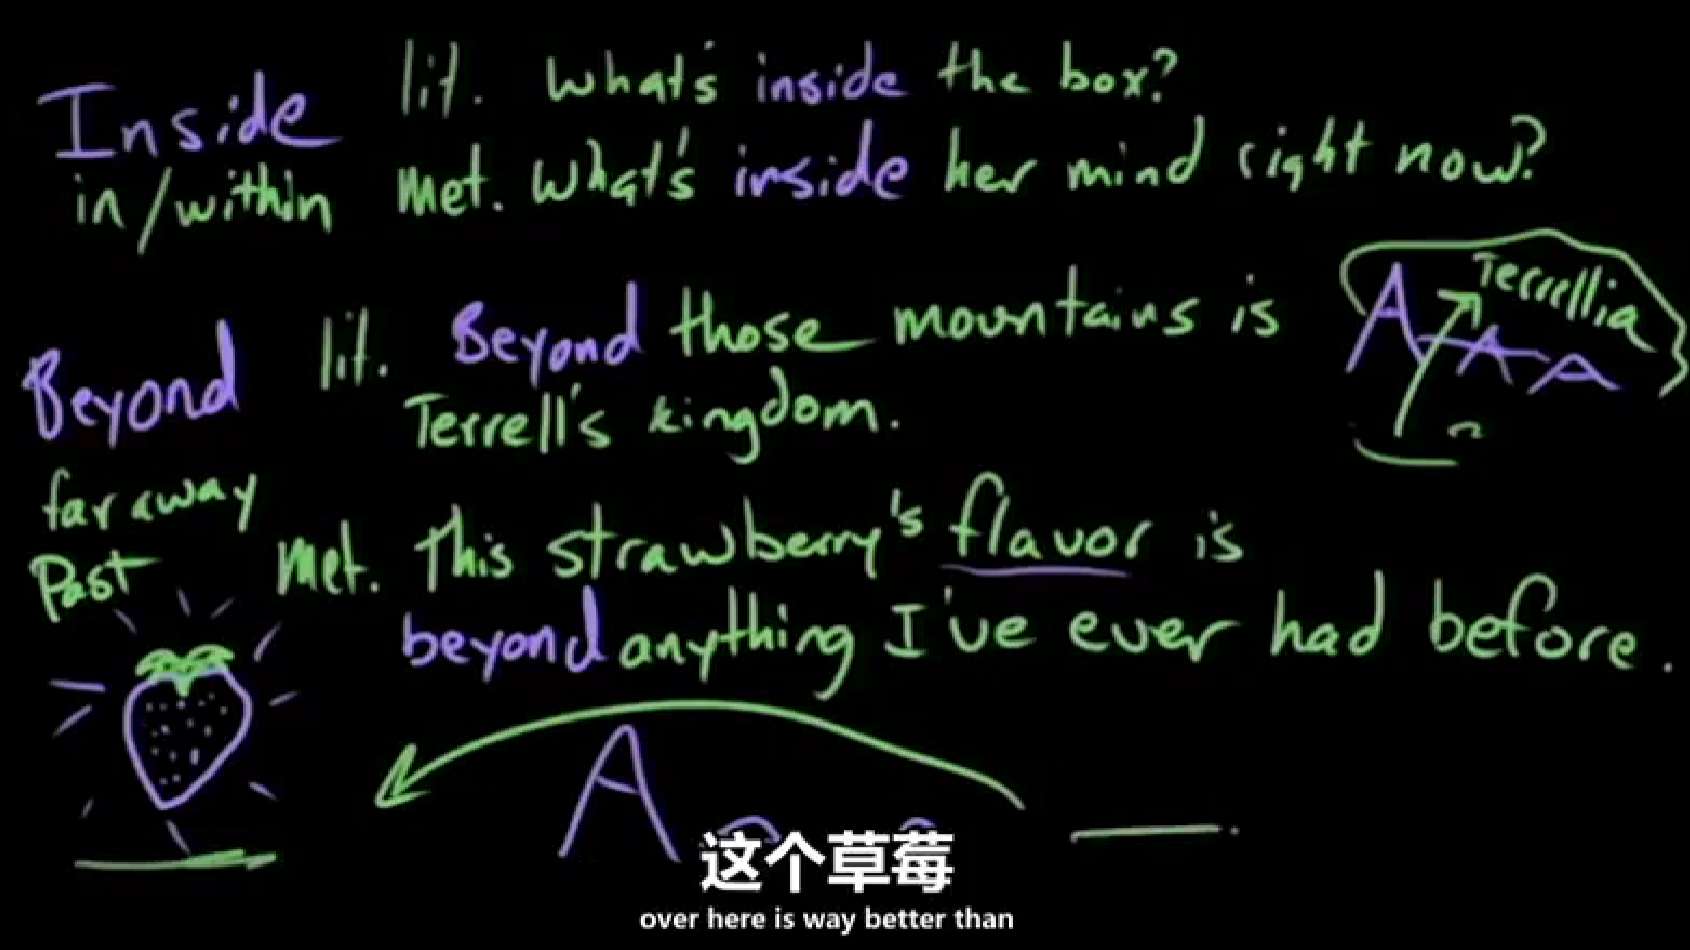 Inside lit. What's inside the box?
in/within met. What's inside her mind right now?
Beyond lit. Beyond those mountains is
Terrell's kingdom.
Terrellia
far away
Past
met. This strawberry's flavor is
beyond anything I've ever had before.
这个草莓
over here is way better than